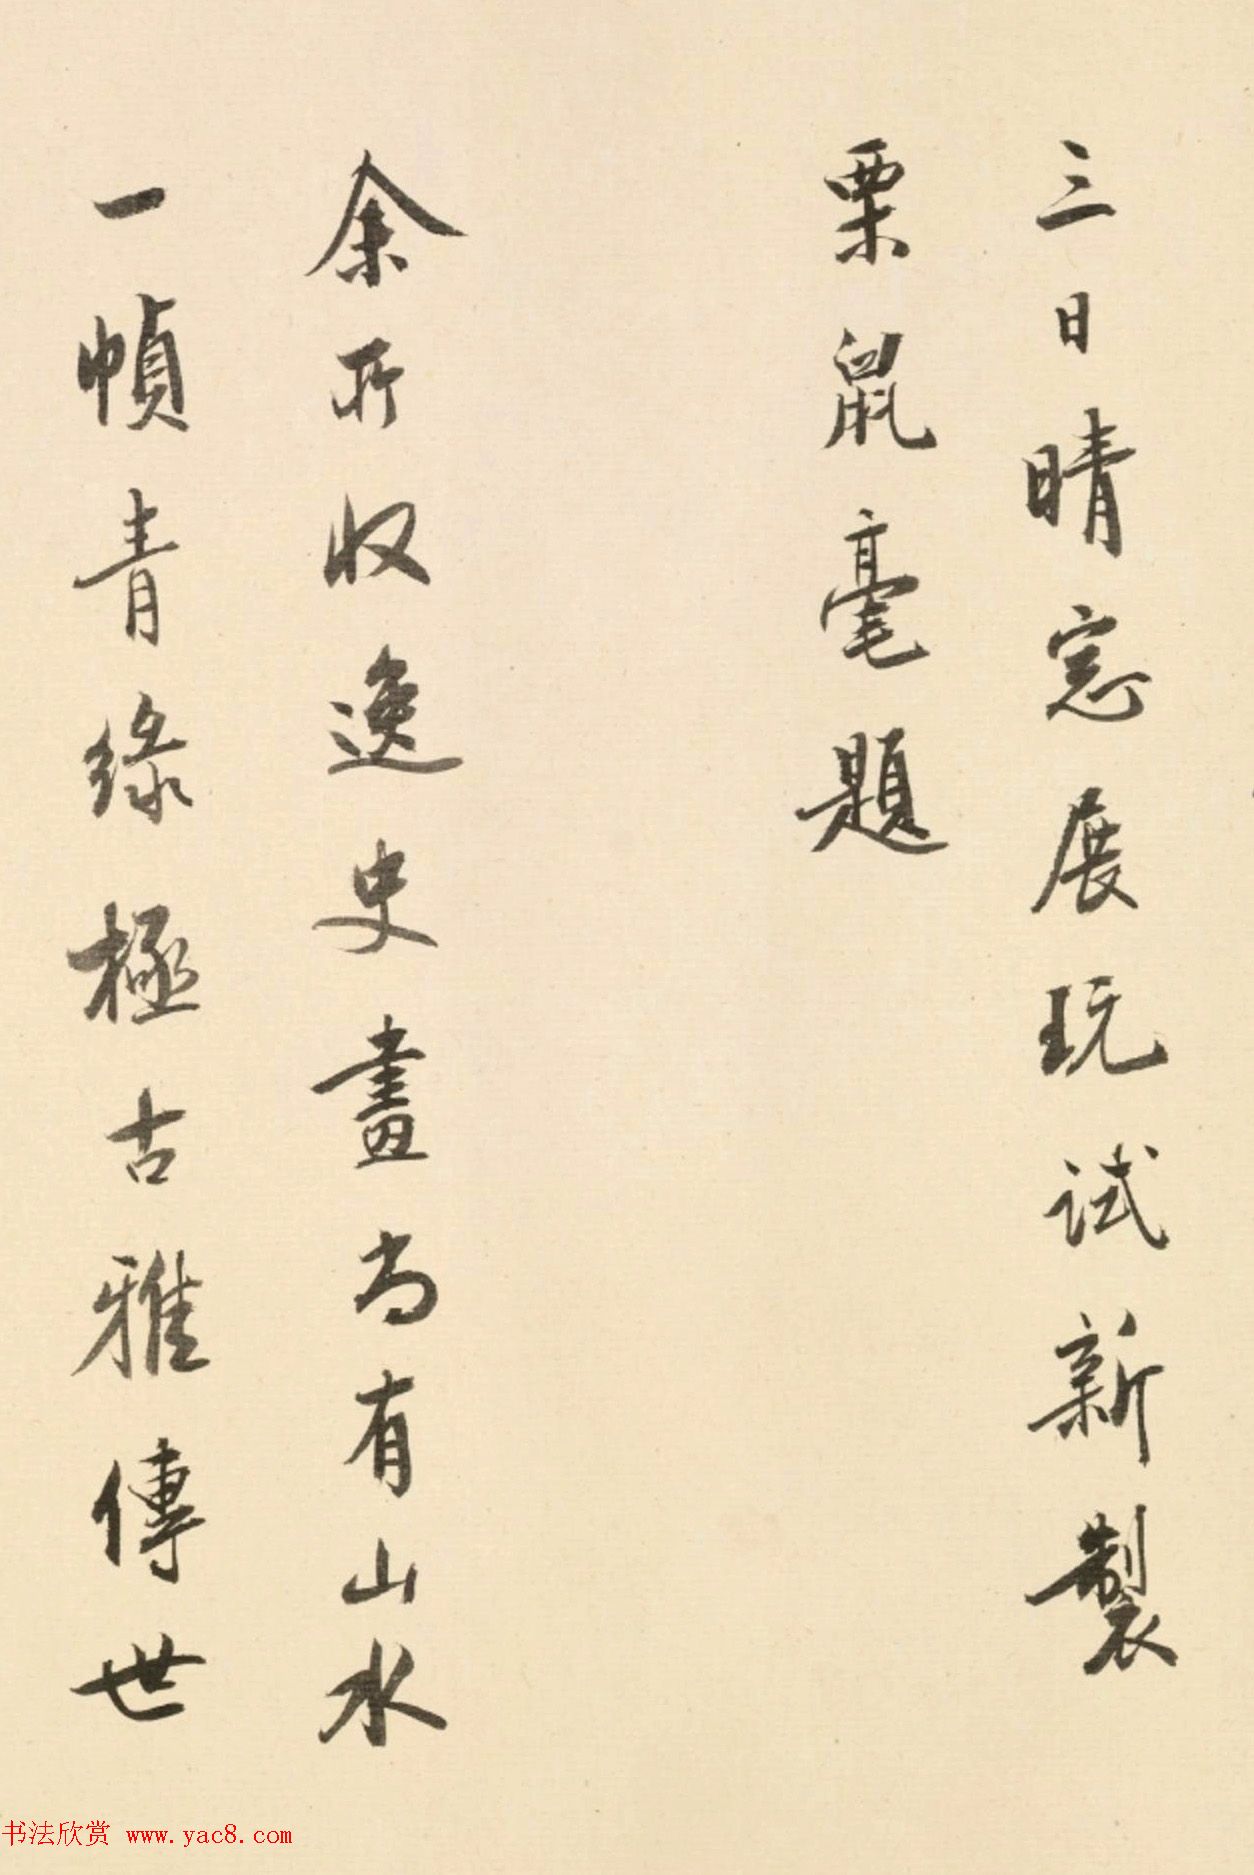 三日晴窓展玩試新製
栗鼠毫題
余所收逸史畫尚有山水
一幀青綠極古雅傳世
书法欣赏 www.yac8.com